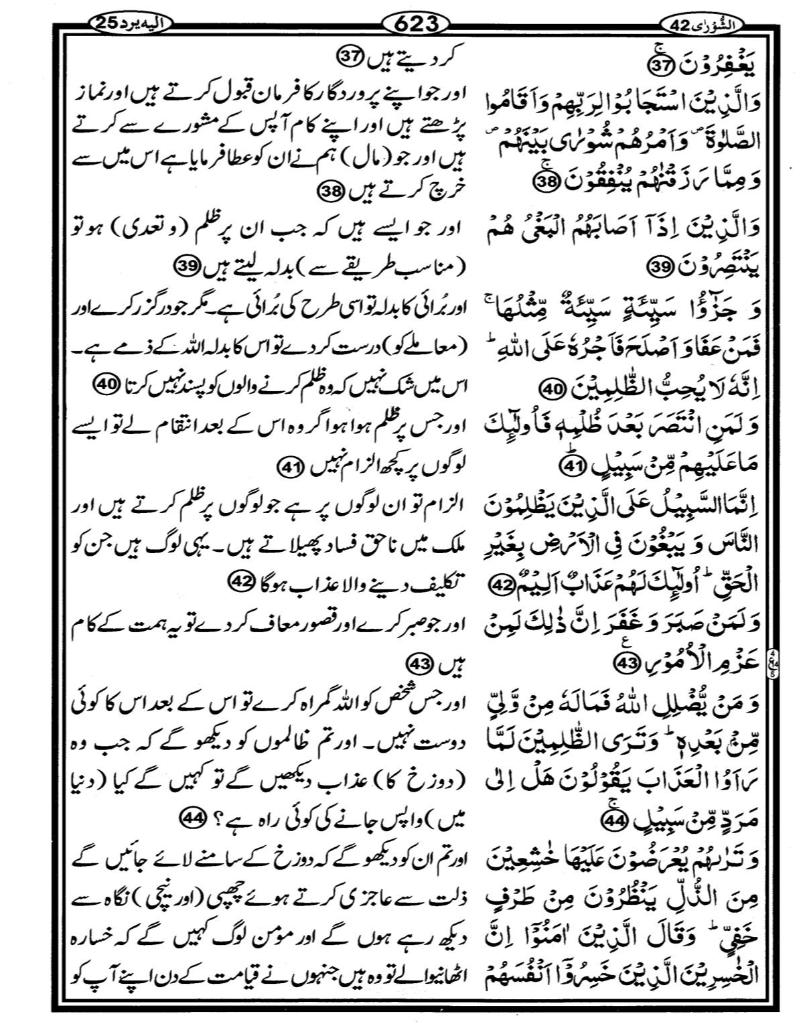 الشُّوْرٰی 42
623
الیہ یرد 25
یَغْفِرُوْنَ ۚ 37
وَالَّذِیْنَ اسْتَجَابُوْا لِرَبِّهِمْ وَاَقَامُوا
الصَّلٰوةَ ۪ وَاَمْرُهُمْ شُوْرٰی بَیْنَهُمْ ۪
وَمِمَّا رَزَقْنٰهُمْ یُنْفِقُوْنَ ۚ 38
وَالَّذِیْنَ اِذَاۤ اَصَابَهُمُ الْبَغْیُ هُمْ
یَنْتَصِرُوْنَ 39
وَ جَزٰٓؤُا سَیِّئَةٍ سَیِّئَةٌ مِّثْلُهَا ۚ
فَمَنْ عَفَا وَاَصْلَحَ فَاَجْرُهٗ عَلَی اللّٰهِ ؕ
اِنَّهٗ لَا یُحِبُّ الظّٰلِمِیْنَ 40
وَلَمَنِ انْتَصَرَ بَعْدَ ظُلْمِهٖ فَاُولٰٓئِكَ
مَا عَلَیْهِمْ مِّنْ سَبِیْلٍ ؕ 41
اِنَّمَا السَّبِیْلُ عَلَی الَّذِیْنَ یَظْلِمُوْنَ
النَّاسَ وَ یَبْغُوْنَ فِی الْاَرْضِ بِغَیْرِ
الْحَقِّ ؕ اُولٰٓئِكَ لَهُمْ عَذَابٌ اَلِیْمٌ 42
وَلَمَنْ صَبَرَ وَ غَفَرَ اِنَّ ذٰلِكَ لَمِنْ
عَزْمِ الْاُمُوْرِ ع 43
وَ مَنْ یُّضْلِلِ اللّٰهُ فَمَا لَهٗ مِنْ وَّلِیٍّ
مِّنْۢ بَعْدِهٖ ؕ وَتَرَی الظّٰلِمِیْنَ لَمَّا
رَاَوُا الْعَذَابَ یَقُوْلُوْنَ هَلْ اِلٰی
مَرَدٍّ مِّنْ سَبِیْلٍ ۚ 44
وَ تَرٰىهُمْ یُعْرَضُوْنَ عَلَیْهَا خٰشِعِیْنَ
مِنَ الذُّلِّ یَنْظُرُوْنَ مِنْ طَرْفٍ
خَفِیٍّ ؕ وَقَالَ الَّذِیْنَ اٰمَنُوْۤا اِنَّ
الْخٰسِرِیْنَ الَّذِیْنَ خَسِرُوْۤا اَنْفُسَهُمْ
کر دیتے ہیں 37
اور جو اپنے پروردگار کا فرمان قبول کرتے ہیں اور نماز
پڑھتے ہیں اور اپنے کام آپس کے مشورے سے کرتے
ہیں اور جو (مال) ہم نے ان کو عطا فرمایا ہے اس میں سے
خرچ کرتے ہیں 38
اور جو ایسے ہیں کہ جب ان پر ظلم (و تعدی) ہو تو
(مناسب طریقے سے) بدلہ لیتے ہیں 39
اور بُرائی کا بدلہ تو اسی طرح کی بُرائی ہے۔ مگر جو درگزر کرے اور
(معاملے کو) درست کر دے تو اس کا بدلہ اللہ کے ذمے ہے۔
اس میں شک نہیں کہ وہ ظلم کرنے والوں کو پسند نہیں کرتا 40
اور جس پر ظلم ہوا ہو اگر وہ اس کے بعد انتقام لے تو ایسے
لوگوں پر کچھ الزام نہیں 41
الزام تو ان لوگوں پر ہے جو لوگوں پر ظلم کرتے ہیں اور
ملک میں ناحق فساد پھیلاتے ہیں۔ یہی لوگ ہیں جن کو
تکلیف دینے والا عذاب ہوگا 42
اور جو صبر کرے اور قصور معاف کر دے تو یہ ہمت کے کام
ہیں 43
اور جس شخص کو اللہ گمراہ کرے تو اس کے بعد اس کا کوئی
دوست نہیں۔ اور تم ظالموں کو دیکھو گے کہ جب وہ
(دوزخ کا) عذاب دیکھیں گے تو کہیں گے کیا (دنیا
میں) واپس جانے کی کوئی راہ ہے؟ 44
اور تم ان کو دیکھو گے کہ دوزخ کے سامنے لائے جائیں گے
ذلت سے عاجزی کرتے ہوئے چھپی (اور نیچی) نگاہ سے
دیکھ رہے ہوں گے اور مؤمن لوگ کہیں گے کہ خسارہ
اٹھانیوالے تو وہ ہیں جنہوں نے قیامت کے دن اپنے آپ کو